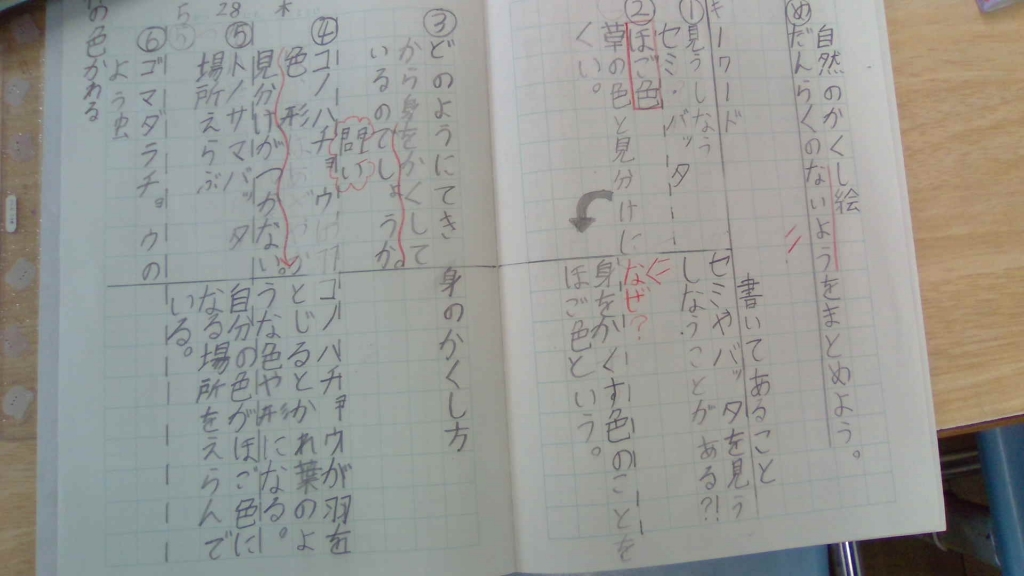 め
自然のかくし絵
だんらくのないようをまとめよう。
キーワード
書いてあること
①見うしなう
セミ・バッタ
セミやバッタを見う
しなうことがある?!
②ほご色
草の色と見分けに
くい。
なぜ?
身をかくす色のことを
ほご色という。
③どのようにてき
から身をかくして
いるのでしょうか。
問い
身のかくし方
④コノハチョウ
色、形
見分けがつかない。
コノハチョウが羽を
とじるとかれ葉のよ
うな色や形になる。
⑤トノサマバッタ
場所えらぶ
自分の色がほご色に
なる場所をえらんで
いる。
5 28 木
⑥ゴマダラチョウの
よう虫
の色かわる